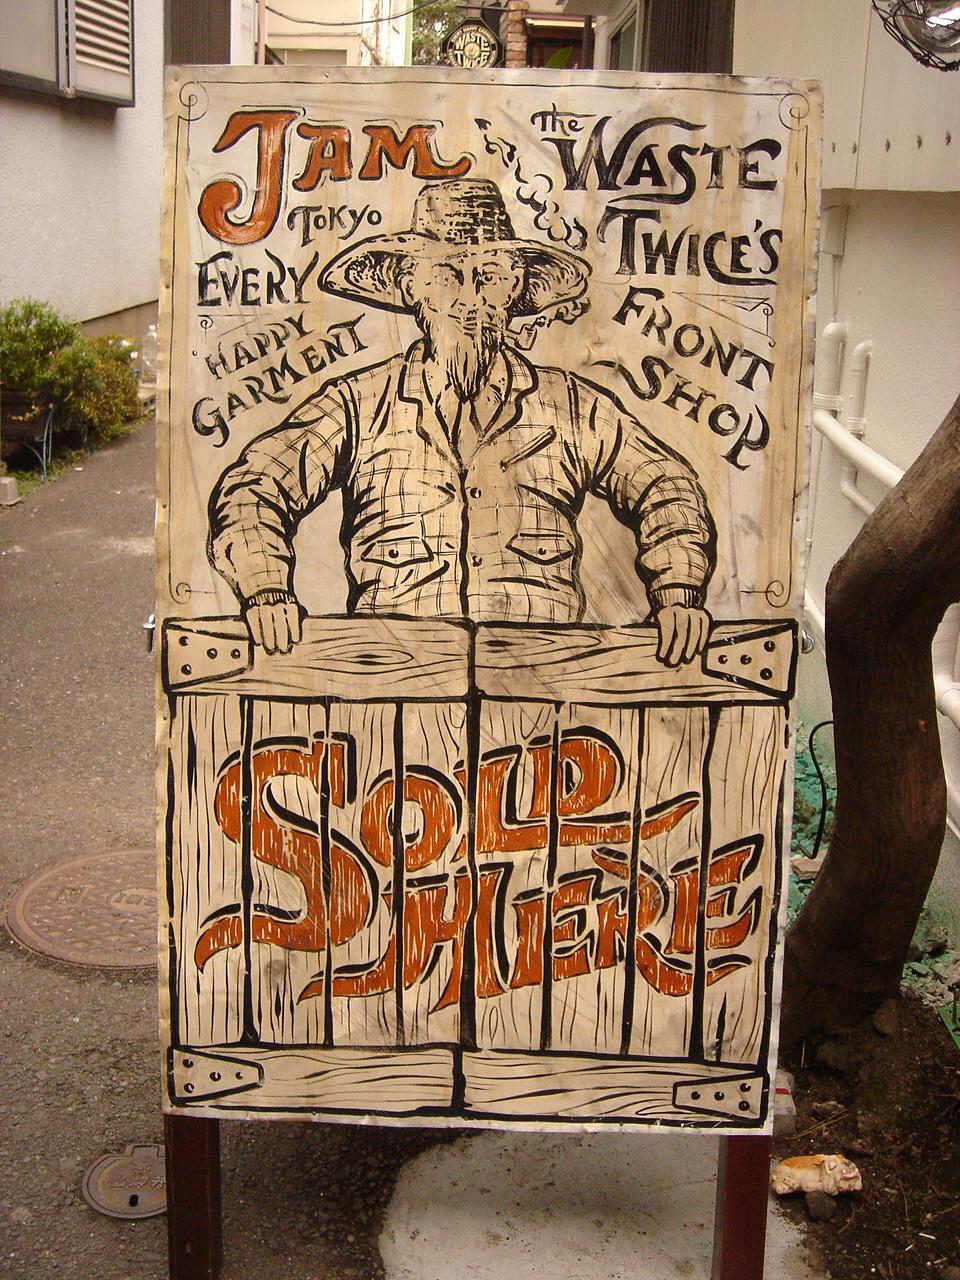 WASTE
TWICE
JAM
TOKYO
EVERY
HAPPY
GARMENT
The WASTE
TWICE'S
FRONT
SHOP
SOLD
HERE